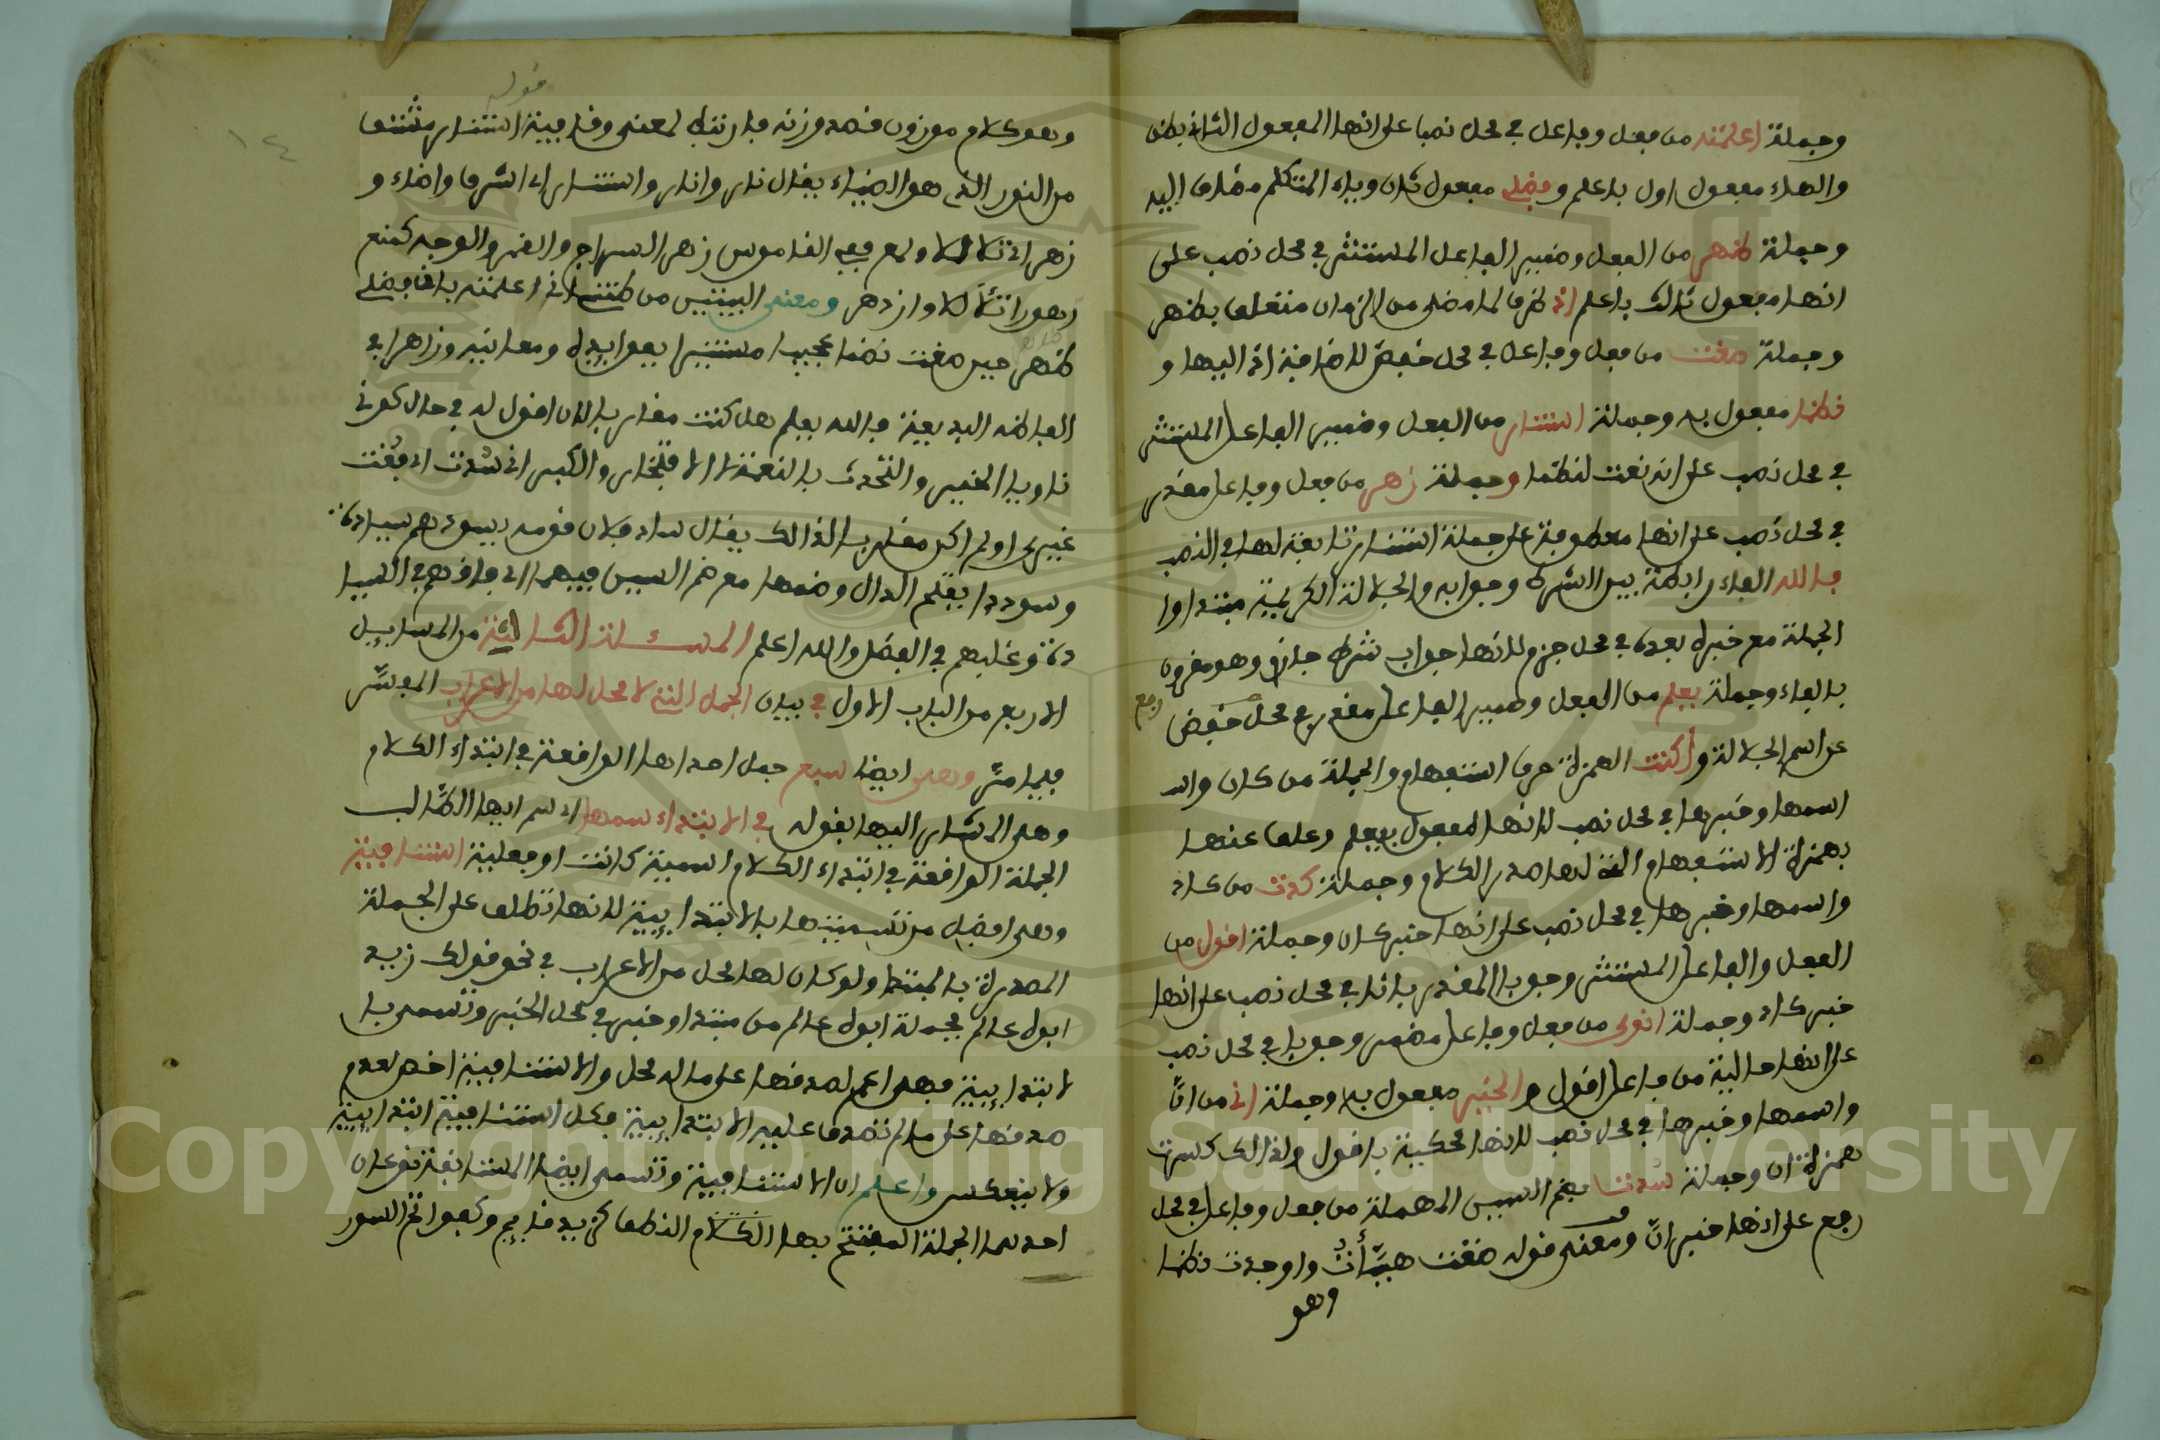 وجملة اعلمته من فعل وفاعل في محل نصبا على انها المفعول الثاني بظن
والهاء مفعول اول باعلم وفضلي مفعول ثان وياء المتكلم مضاف اليه
وجملة ظهر من الفعل وضمير الفاعل المستتر في محل نصب على
انها مفعول ثالث باعلم اذ ظرف لما مضى من الزمان متعلق بظهر
وجملة صغت من فعل وفاعل في محل خفض للاضافة اذ اليها و
نظما مفعول به وجملة استنار من الفعل وضمير الفاعل المستتر
في محل نصب على انه نعت لنظما وجملة زهر من فعل وفاعل مقدر
في محل نصب على انها معطوفة على جملة استنار تابعة لها في النصب
فالله الفاء رابطة بين الشرط وجوابه والجلالة الكريمة مبتدا وا
الجملة مع خبره بعده في محل جزم لانها جواب شرط جازم وهو مقرون
بالفاء وجملة يعلم من الفعل وضمير الفاعل مقدر في محل خفض رفع
عن اسم الجلالة وأكنت الهمزة حرف استفهام والجملة من كان وا
اسمها وخبرها في محل نصب لانها المفعول بيعلم وعلق عنها
بهمزة الاستفهام التي لها صدر الكلام وجملة كدت من كاد
واسمها وخبرها في محل نصب على انها خبر كان وجملة اقول من
الفعل والفاعل المستتر وجوبا المقدر بانا في محل نصب على انها
خبر كاد وجملة انوى من فعل وفاعل مضمر وجوبا في محل نصب
على انها حالية من فاعل اقول والخبر مفعول به وجملة اني من انّ
واسمها وخبرها في محل نصب لانها محكية باقول ولذالك كسرت
همزة ان وجملة سدت بضم السين المهملة من فعل وفاعل في محل
رفع على انها خبر انّ ومعنى قوله صغت هيّأت واوجدت نظما
وهو
قوله
١٤
وهو كلام موزون قصد وزنه فارتبط لمعنى وقافية استنار مشتقا
من النور الذي هو الضياء يقال نار وانار واستنار اي اشرق واضاء و
زهر اي تلالا ولمع ففي القاموس زهر السراج والقمر والوجه كمنع
زهورا تلألا وازدهر ومعنى البيتين من ظنني اني اعلمته بان فضلي
ظهر حين صغت نظما عجيبا مستنيرا بفوايده ومعانيه وزاهرا في
الفاظه البديعة فالله يعلم هل كنت مقاربا لان اقول له في حال كوني
ناويا الخبر والتحدث بالنعمة لا الافتخار والكبر اني سدت اي فقت
غيري او لم اكن مقاربا لذالك يقال ساد فلان قومه يسودهم سيادة
وسوددا بفتح الدال وضمها مع ضم السين فيهما اي فاقهم في السيا
دة وغلبهم في الفضل والله اعلم المسئلة الثالثة من المسايل
الاربع من الباب الاول في بيان الجمل التي لا محل لها من الاعراب المفسّر
فيما مرّ وهي ايضا سبع جمل احداها الواقعة في ابتداء الكلام
وهي المشار اليها بقوله في الابتداء سمها اي سم ايها الطالب
الجملة الواقعة في ابتداء الكلام اسمية كانت او فعلية استينافية
وهي افضل من تسميتها بالابتدايية لانها تطلق على الجملة
المصدرة بالمبتدا ولو كان لها محل من الاعراب في نحو قولك زيد
ابوه عالم فجملة ابوه عالم من مبتدا وخبر في محل الخبر وتسمى با
لابتدايية فهي اعم لصدقها على ماله محل والاستينافية اخص لعدم
صدقها على ما لم تصدق عليه الابتدايية فكل استينافية ابتدايية
ولا ينعكس واعلم ان الاستينافية وتسمى ايضا المستانفة نوعان
احدهما الجملة المفتتح بها الكلام النطق كزيد قايم وكفواتح السور